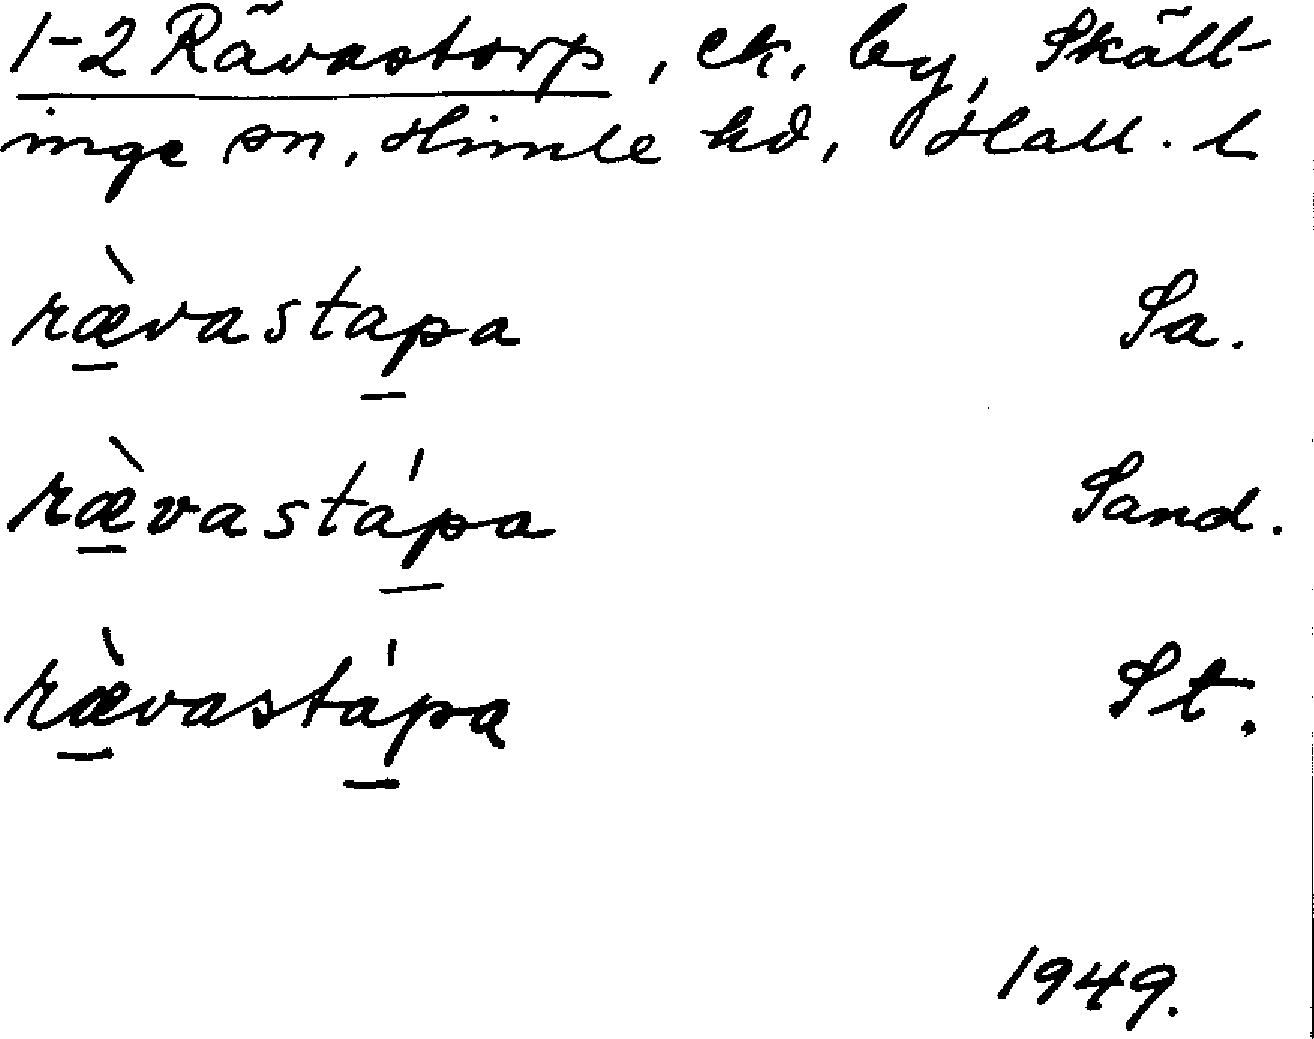 1-2 Rävastorp, ek. by, Skäll-
inge sn, Himle hd, Hall. l
ræ̀vastapa Sa.
ræ̀vastápa Sand.
ræ̀vastápa St.
1949.